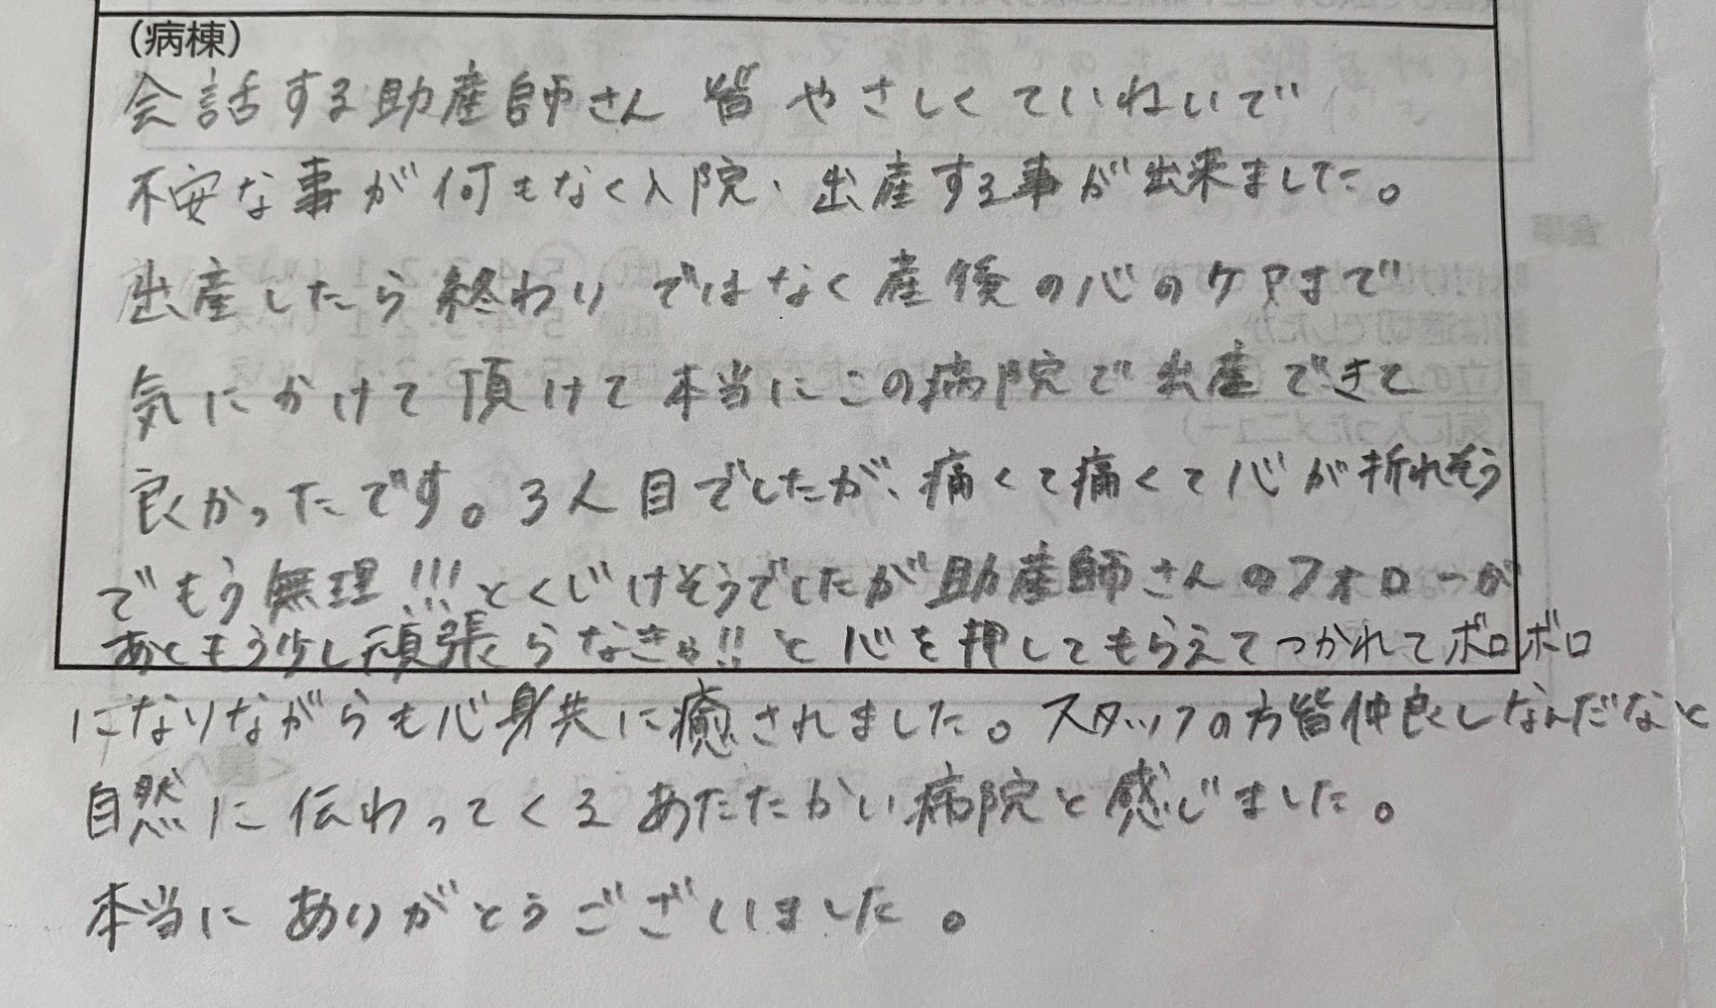 (病棟)
会話する助産師さん 皆 やさしくていねいで
不安な事が何もなく入院、出産する事が出来ました。
出産したら終わりではなく産後の心のケアまで
気にかけて頂けて本当にこの病院で出産できて
良かったです。3人目でしたが、痛くて痛くて心が折れそう
でもう無理!!!とくじけそうでしたが助産師さんのフォローが
あともう少し頑張らなきゃ!!と心を押してもらえてつかれてボロボロ
になりながらも心身共に癒されました。スタッフの方皆仲良しなんだなと
自然に伝わってくるあたたかい病院と感じました。
本当にありがとうございました。